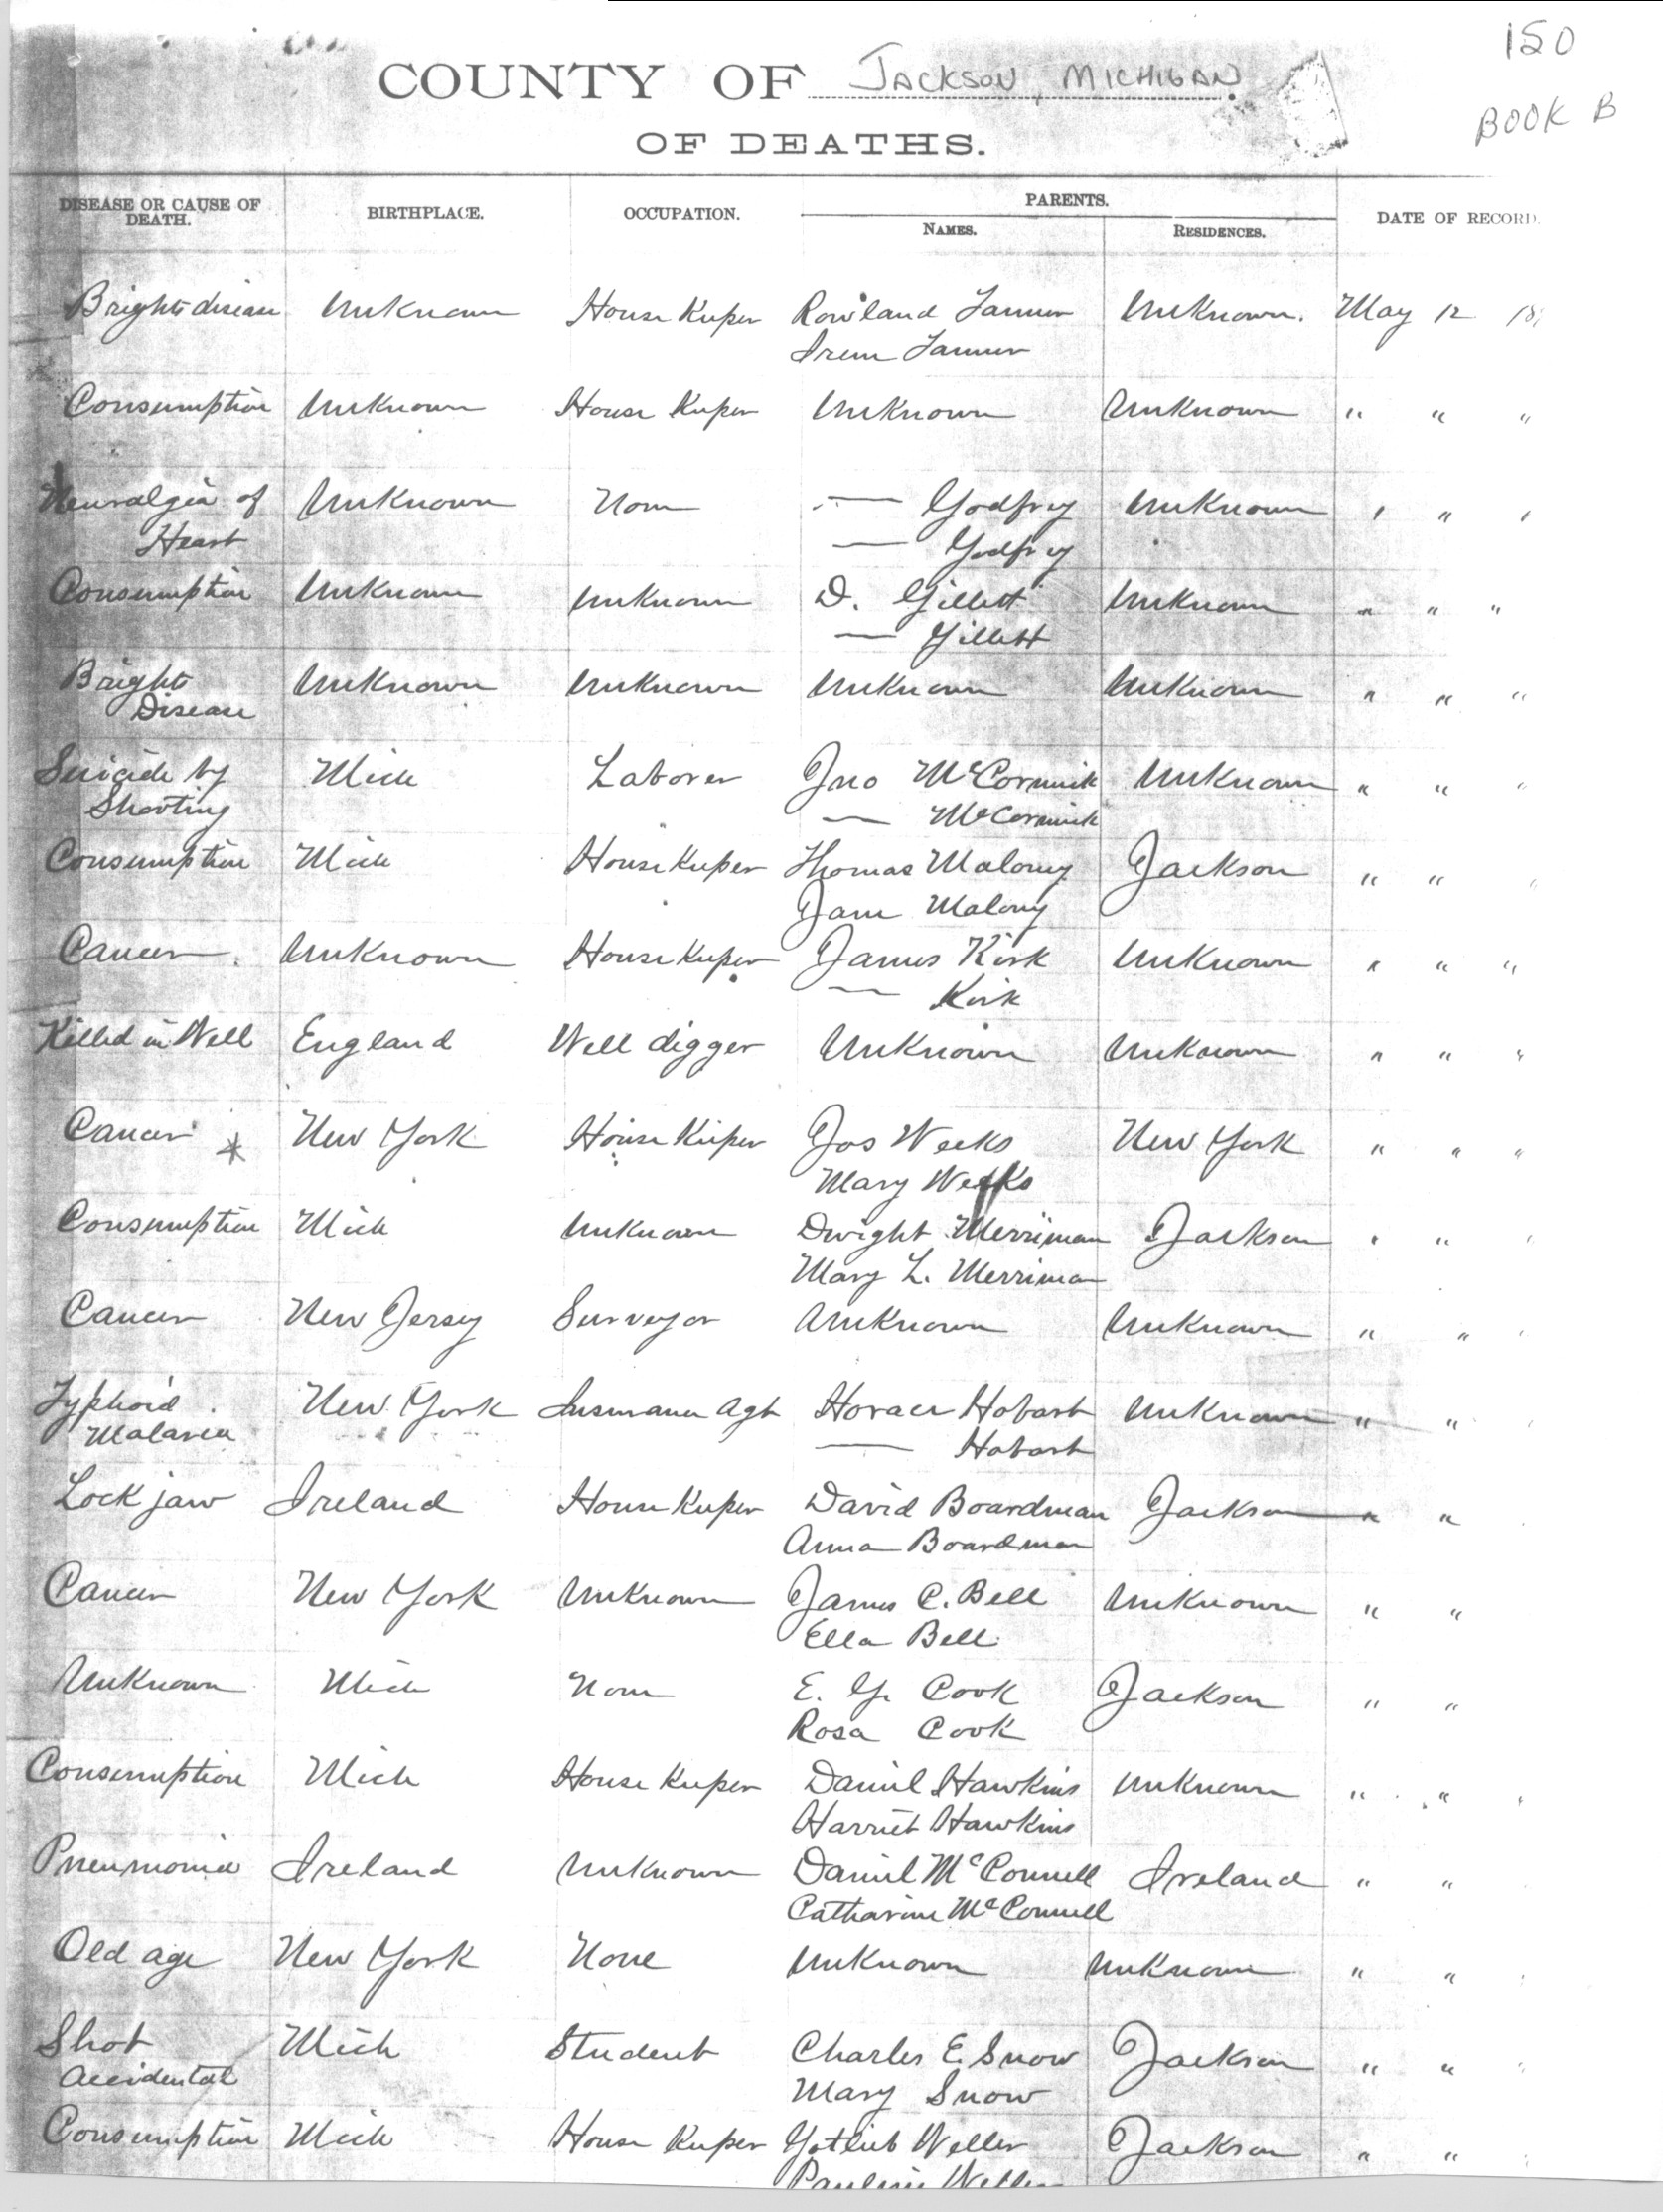 150
COUNTY OF JACKSON, MICHIGAN.
BOOK B
OF DEATHS.
DISEASE OR CAUSE OF DEATH. BIRTHPLACE. OCCUPATION. PARENTS. NAMES. RESIDENCES. DATE OF RECORD.
Brights disease Unknown House Keeper Rowland Tanner Unknown. May 12 18
Irene Tanner
Consumption Unknown House Keeper Unknown Unknown " " "
Neuralgia of Unknown None — Godfrey Unknown " " "
Heart — Godfrey
Consumption Unknown Unknown D. Gillett Unknown " " "
— Gillett
Brights Unknown Unknown Unknown Unknown " " "
Disease
Suicide by Mich Laborer Jno McCormick Unknown " " "
Shooting — McCormick
Consumption Mich House Keeper Thomas Malony Jackson " " "
Jane Malony
Cancer Unknown House Keeper James Kirk Unknown " " "
— Kirk
Killed in Well England Well digger Unknown Unknown " " "
Cancer * New York House Keeper Jos Weeks New York " " "
Mary Weeks
Consumption Mich Unknown Dwight Merriman Jackson " " "
Mary L. Merriman
Cancer New Jersey Surveyor Unknown Unknown " " "
Typhoid New York Insurance Agt Horace Hobart Unknown " " "
Malaria — Hobart
Lock jaw Ireland House Keeper David Boardman Jackson " "
Anna Boardman
Cancer New York Unknown James C. Bell Unknown " "
Ella Bell
Unknown Mich None E. G. Cook Jackson " "
Rosa Cook
Consumption Mich House Keeper Daniel Hawkins Unknown " " "
Harriet Hawkins
Pneumonia Ireland Unknown Daniel McConnell Ireland " "
Catharine McConnell
Old age New York None Unknown Unknown " "
Shot Mich Student Charles E. Snow Jackson " " "
Accidental Mary Snow
Consumption Mich House Keeper Gotlieb Weller Jackson " "
Pauline Weller